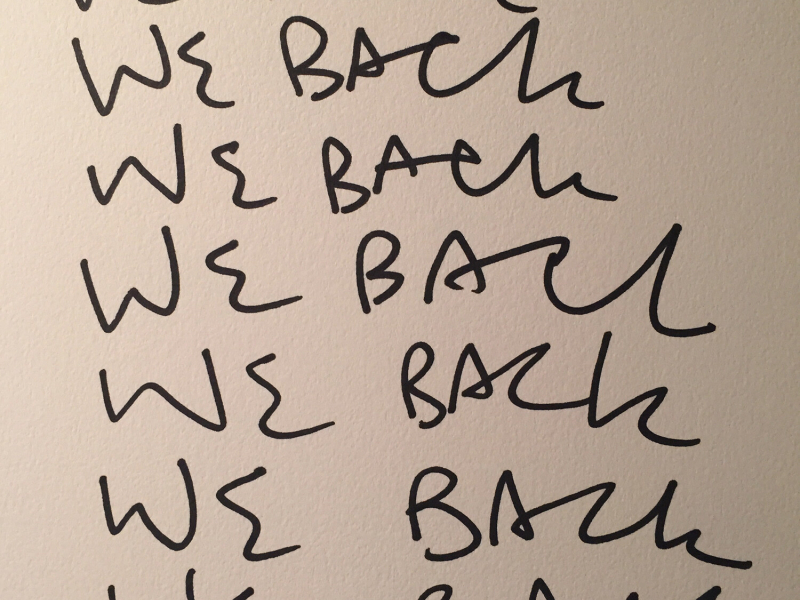 WE BACK
WE BACK
WE BACK
WE BACK
WE BACK
WE BACK